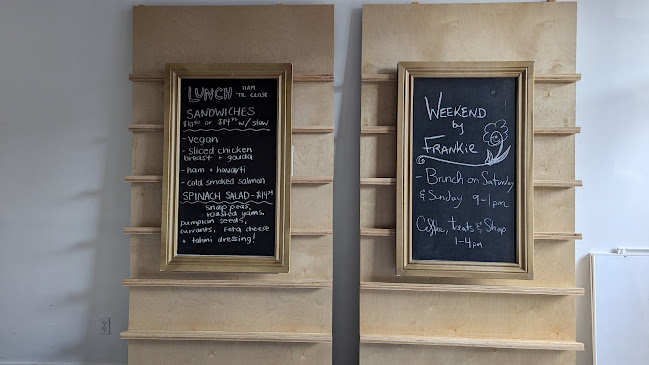 LUNCH 11AM
'TIL CLOSE
SANDWICHES
w/ slaw
- vegan
- Sliced chicken
breast + gouda
- ham + havarti
- cold smoked salmon
SPINACH SALAD - $14.75
snap peas,
roasted yams,
pumpkin seeds,
currants, feta cheese
+ tahini dressing!
WEEKEND
by
FRANKIE
- Brunch on Saturday
& Sunday 9-1pm
Coffee, treats & Shop
1-4pm